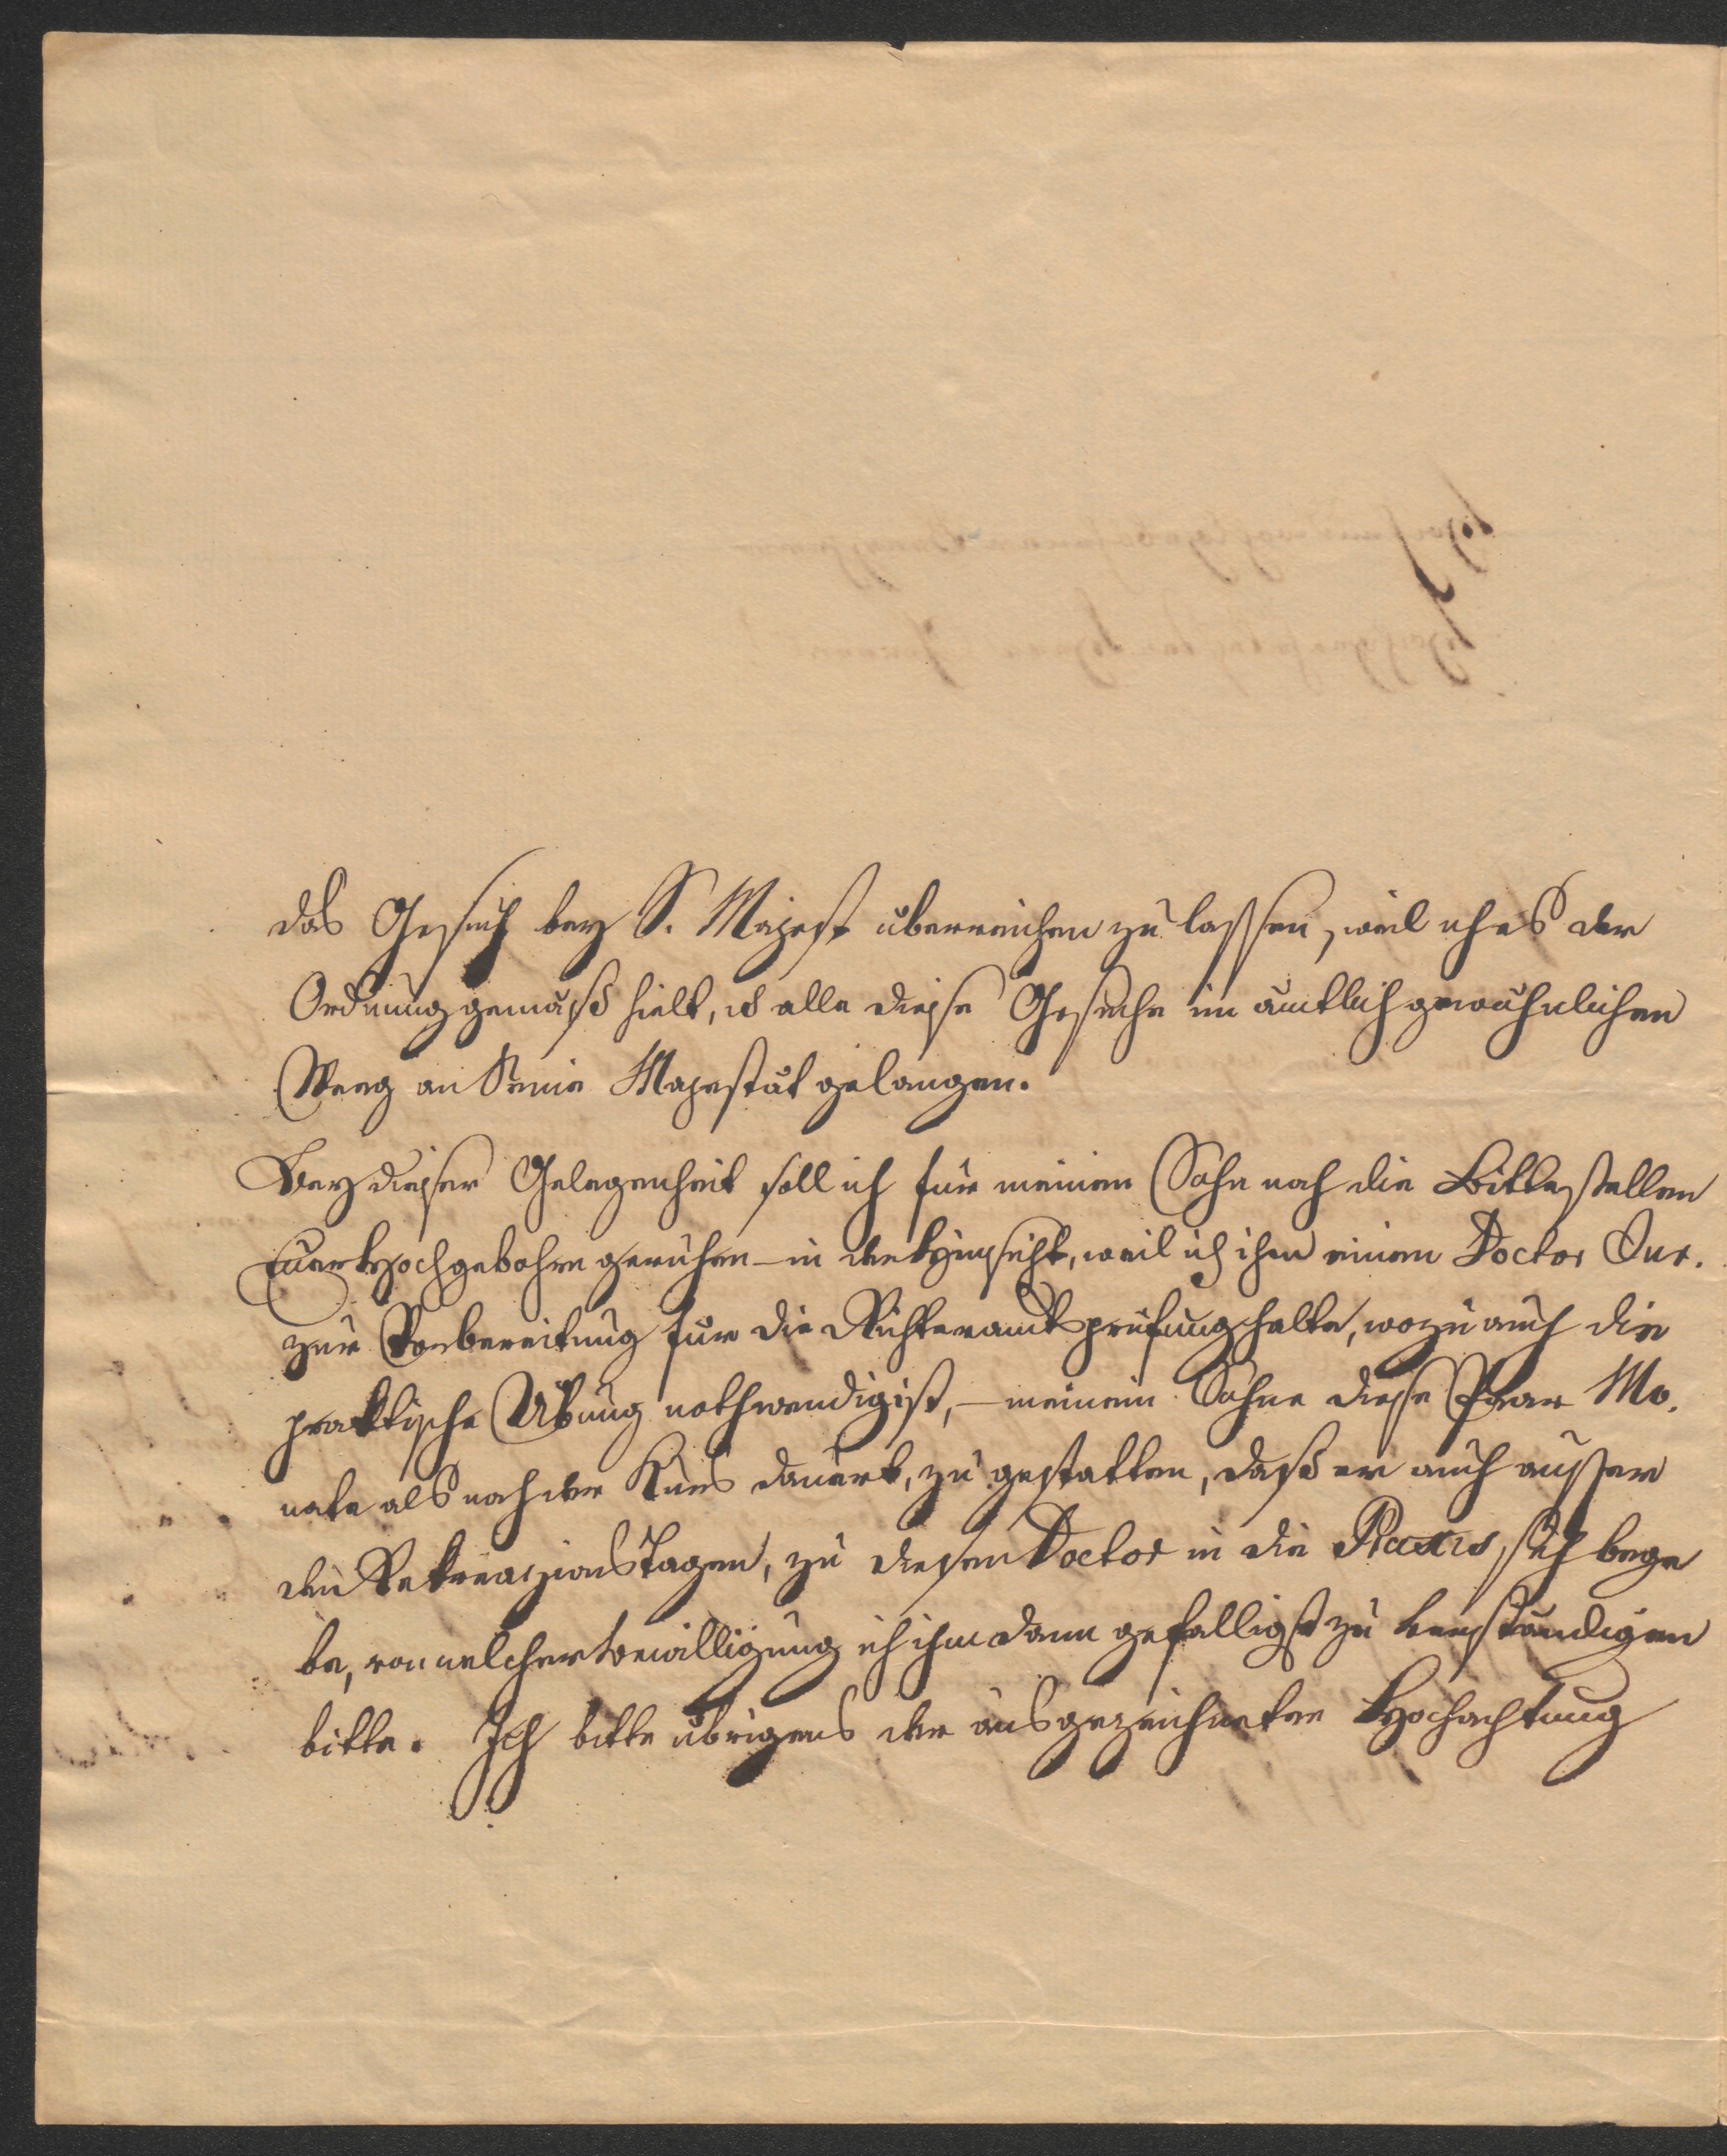 das Gesuch bey S. Majest überreichen zu lassen, weil ich es der
Ordnung gemäß hielt, daß alle diese Gesuche im ämtlich gewöhnlichen
Weeg an Seine Majestät gelangen.
Bey dieser Gelegenheit soll ich für meinen Sohn noch die Bitte stellen
Euer Hochgebohrn geruhen – in der Hinsicht, weil ich ihm einen Doctor Jur.
zur Vorbereitung für die Richteramtsprüfung halte, wozu auch die
praktische Übung nothwendig ist, – meinem Sohne diese Paar Mo.
nate als noch der Kurs dauert, zu gestatten, daß er auch ausser
den Rekreazions Tagen, zu diesem Doctor in die Praxis sich bege
be, von welcher Bewilligung ich ihm dann gefälligst zu verständigen
bitte. Ich bitte übrigens der ausgezeichneten Hochachtung